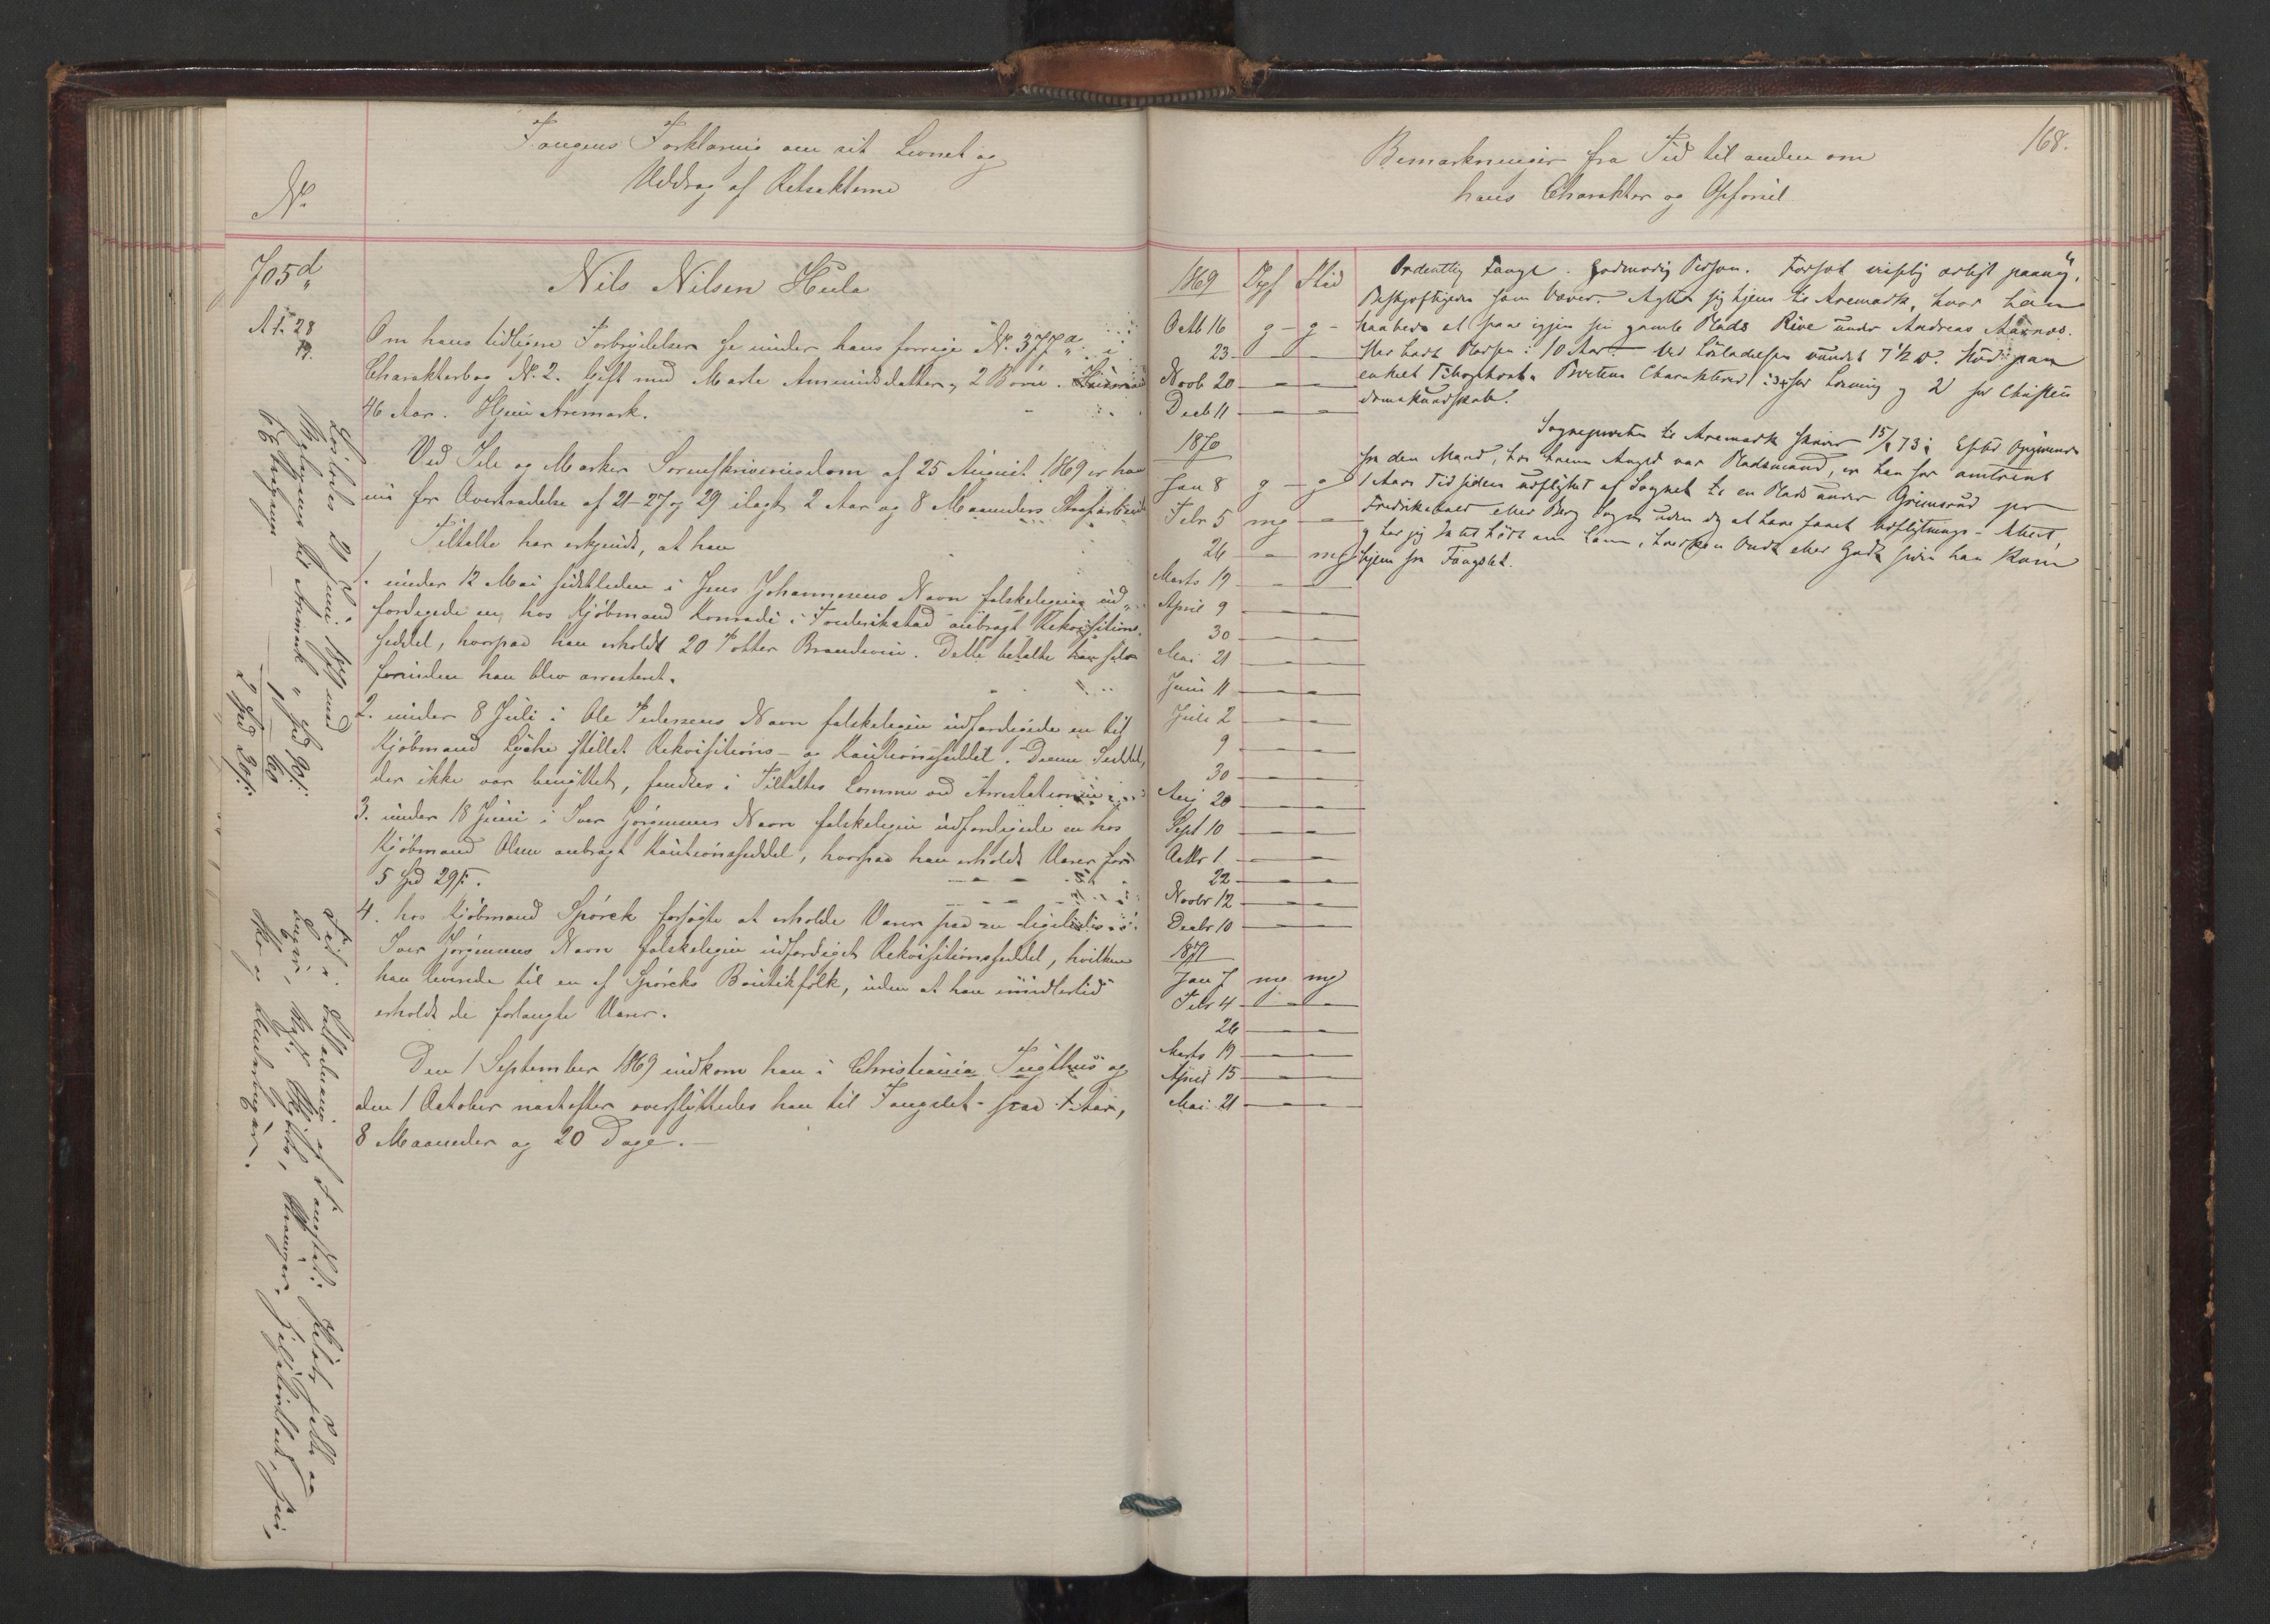 Fangens Forklaring om sit Levnet og
Uddrag af Retsakterne
No
705d
A 1. 28
19.
Nils Nilsen Hula
Om hans tidligere Forbrydelser se under hans forrige No. 377a i
Charakterbog No. 2. Gift med Marte Amundsdatter, 2 Børn.
46 Aar. Hjem Aremark.
Ved Ide og Marker Sorenskriveridom af 25 August 1869 er han
nu for Overtrædelse af 21-27 og 29 ilagt 2 Aar og 8 Maaneders Strafarbeide
Tiltalte har erkjendt, at han
1. under 12 Mai sidstleden i Jens Johannesens Navn falskeligen ud-
færdigede en, hos Kjøbmand Konradi i Frederikstad anbragt Rekvisitions-
seddel, hvorpaa han erholdt 20 Potter Brændeviin. Dette betalte han selv
forinden han blev arresteret.
2. under 8 Juli i Ole Pedersens Navn falskeligen udfærdigede en til
Kjøbmand Lyche stillet Rekvisitions- og Kautionsseddel. Denne Seddel,
der ikke var benyttet, fandtes i Tiltaltes Lomme ved Arrestationen
3. under 18 Juni i Iver Jørgensens Navn falskeligen udfærdigede en hos
Kjøbmand Olsen anbragt Kautionsseddel, hvorpaa han erholdt Varer for
5 Spd 29 s.
4. hos Kjøbmand Spørck forsøgte at erholde Varer paa en ligeledes i
Iver Jørgensens Navn falskeligen udfærdiget Rekvisitionsseddel, hvilken
han leverede til en af Spørcks Boutikfolk, uden at han imidlertid
erholdt de forlangte Varer.
Den 1 September 1869 indkom han i Christiania Tugthus og
den 1 October næstefter overflyttedes han til Fængslet paa 1 Aar,
8 Maaneder og 20 Dage.
Løslades 21 Juni 1871 med
Reisepenge til Aremark 1 Spd 90 s.
60
2 Spd 30 s.
168.
Bemærkninger fra Tid til anden om
hans Charakter og Opførsel
1869 Opf Flid
Octb 16 g - g -
23 - -
Novb 20 - -
Decb 11 - -
1870
Jan 8 g - g
Febr 5 mg -
26 - mg
Marts 19 - -
April 9 - -
30 - -
Mai 21 - -
Juni 11 - -
Juli 2 - -
9 - -
30 - -
Aug 20 - -
Sept 10 - -
Octbr 1 - -
22 - -
Novbr 12 - -
Decbr 10 - -
1871
Jan 7 mg mg
Febr 4 - -
26 - -
Marts 19 - -
April 15 - -
Mai 21 - -
Ordentlig Fange. Godmodig Person. Forsøt paany.
Beskjæftigedes som Væver. Agter sig hjem til Aremark, hvor han
haabede at faae igjen sin gamle Plads Rive under Andreas Aarnæs.
Har havt Pladsen i 10 Aar. Ved Løsladelsen
enkelt Tilbagefald. Charakterer: 3 for Læsning og 2 for Christen
domskundskab.
Sognepræsten til Aremark skriver 15/2 73: Efter Opgivende
fra den Mand, hos hvem Anget var Pladsmand, er han for omtrent
1 Aars Tid siden udflyttet af Sognet til en Plads under Grimsrud pr
Fredrikshald eller Berg Sogn uden dog at have faaet Udflytnings-Attest,
og har jeg Intet hørt om ham, hverken Ondt eller Godt siden han kom
hjem fra Fængslet.